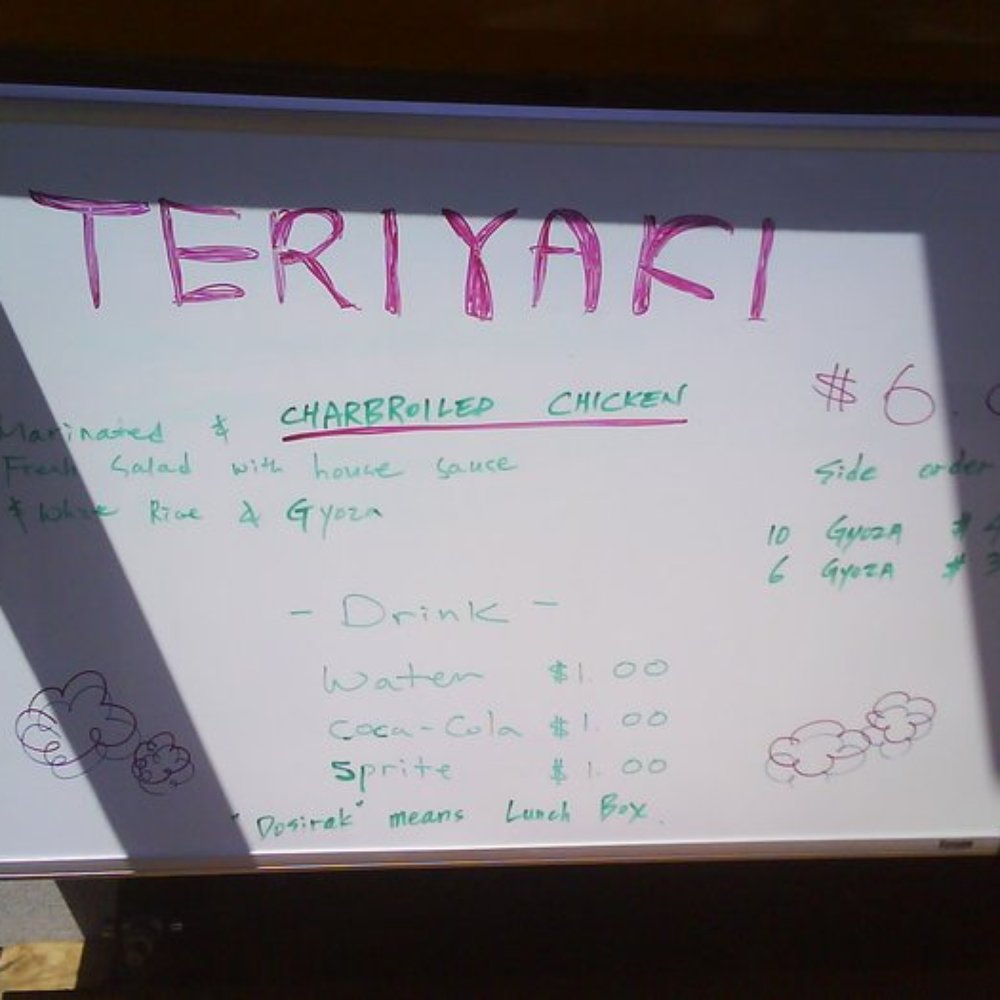 TERIYAKI
$6.
Marinated & CHARBROILED CHICKEN
Fresh Salad with house sauce
& White Rice & Gyoza
Side order
10 GYOZA $4
6 GYOZA $3
- Drink -
Water $1.00
Coca-Cola $1.00
Sprite $1.00
"Dosirak" means Lunch Box.